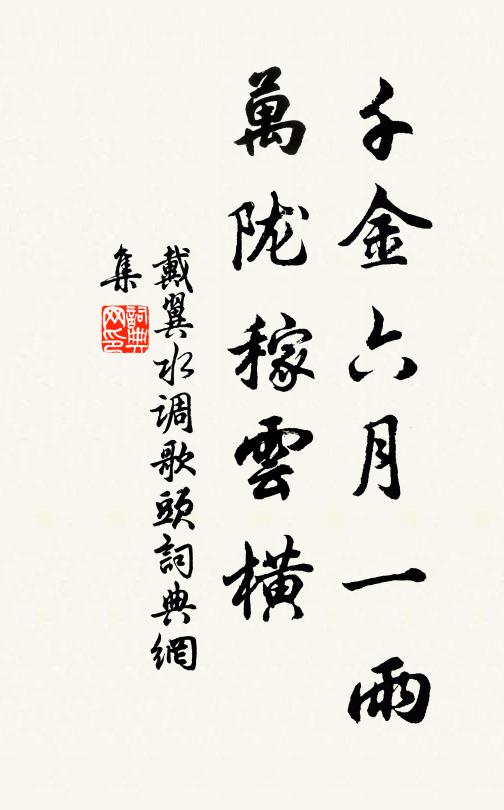 千金六月一雨
萬陇稼雲橫
戴翼水调歌頭詞典網
集
詞典网印